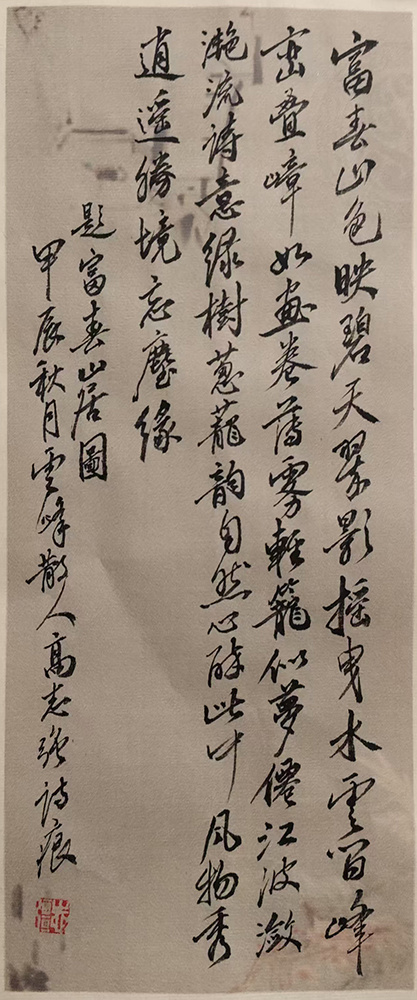 富春山色映碧天翠影摇曳水雲間峰
峦叠嶂如画卷薄雾輕籠似夢僊江波潋
滟流诗意绿樹蔥蘢韵自然心醉此中风物秀
逍遥勝境忘塵缘
题富春山居圖
甲辰秋月雲峰散人高志强诗痕